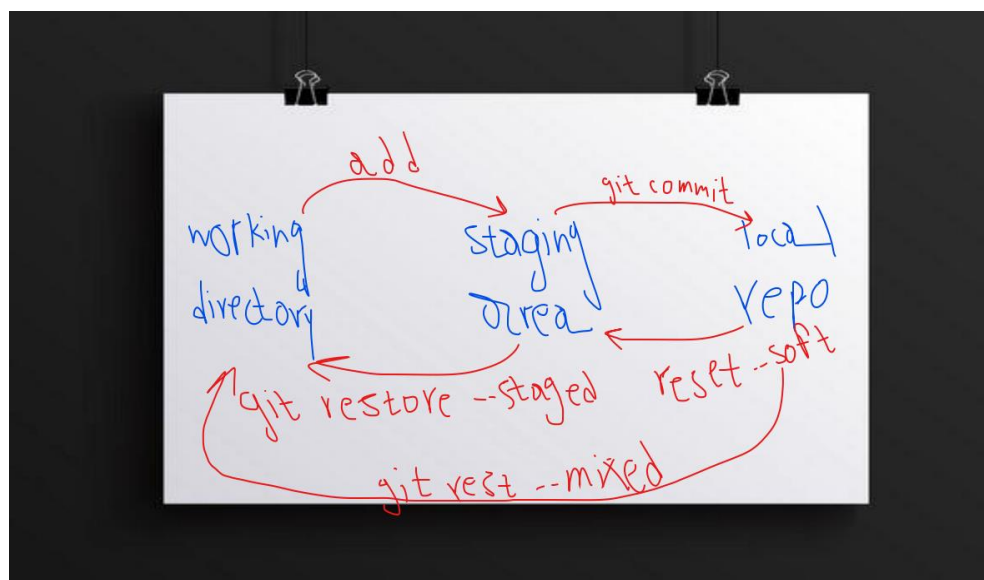 add
git commit
working
directory
staging
area
local
repo
git restore --staged
reset --soft
git rest --mixed